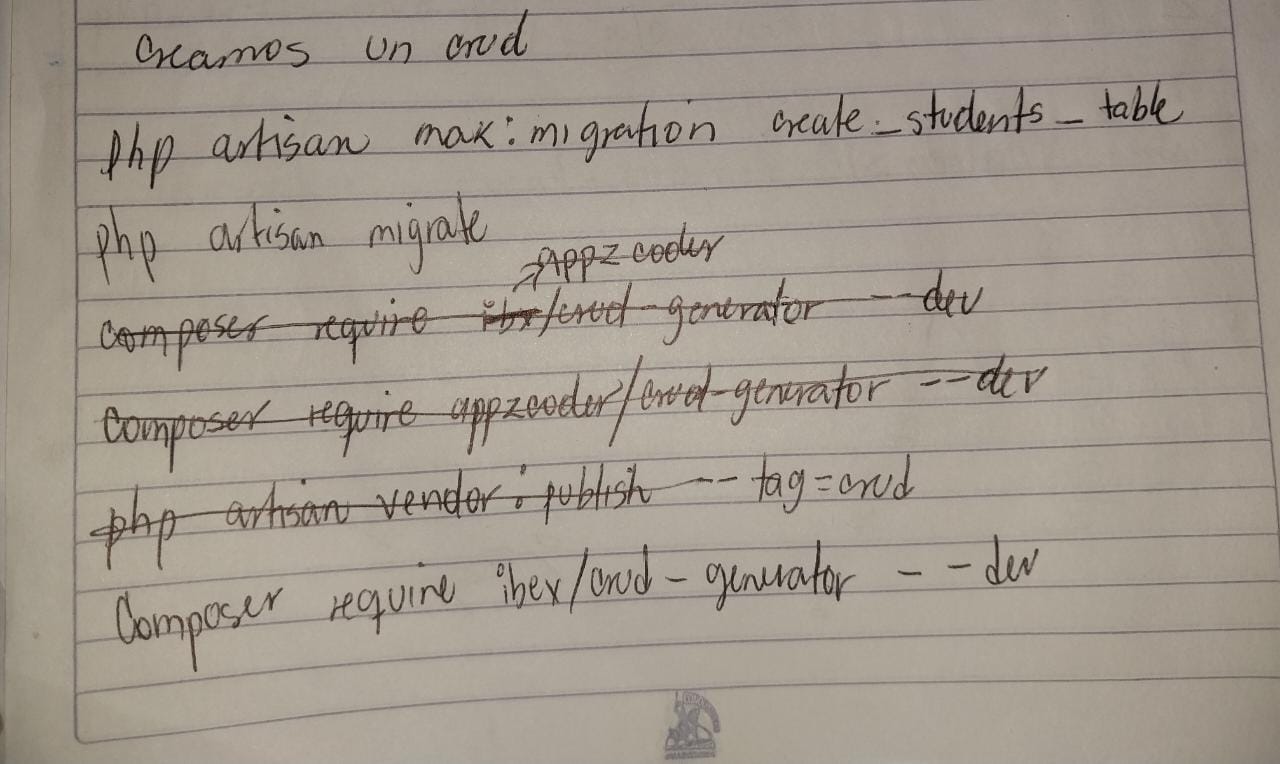 Creamos un crud
php artisan mak:migration create_students_table
php artisan migrate
→Appzcoder
composer require ibx/crud-generator --dev
composer require appzcoder/crud-generator --dev
php artisan vendor:publish --tag=crud
Composer require ibex/crud-generator --dev